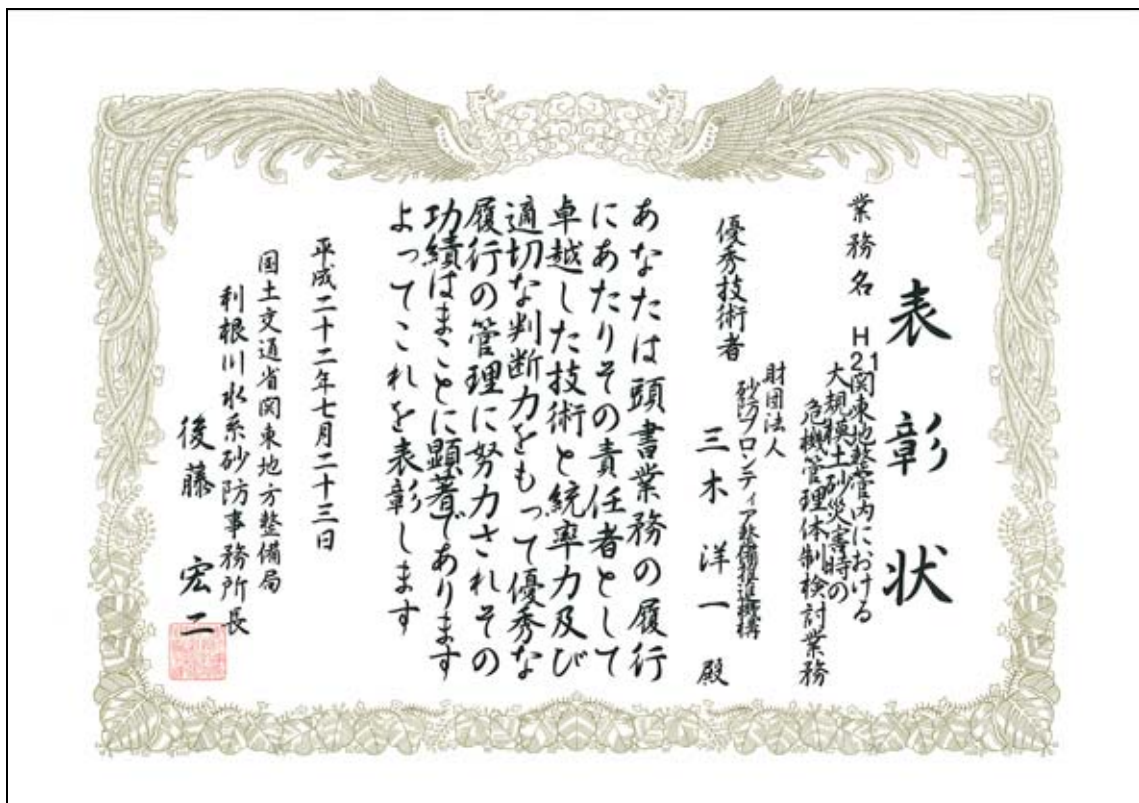 表彰状
業務名 H21関東地整管内における
大規模土砂災害時の
危機管理体制検討業務
財団法人
砂防フロンティア整備推進機構
優秀技術者 三木洋一殿
あなたは頭書業務の履行
にあたりその責任者として
卓越した技術と統率力及び
適切な判断力をもって優秀な
履行の管理に努力されその
功績はまことに顕著であります
よってこれを表彰します
平成二十二年七月二十三日
国土交通省関東地方整備局
利根川水系砂防事務所長
後藤宏二